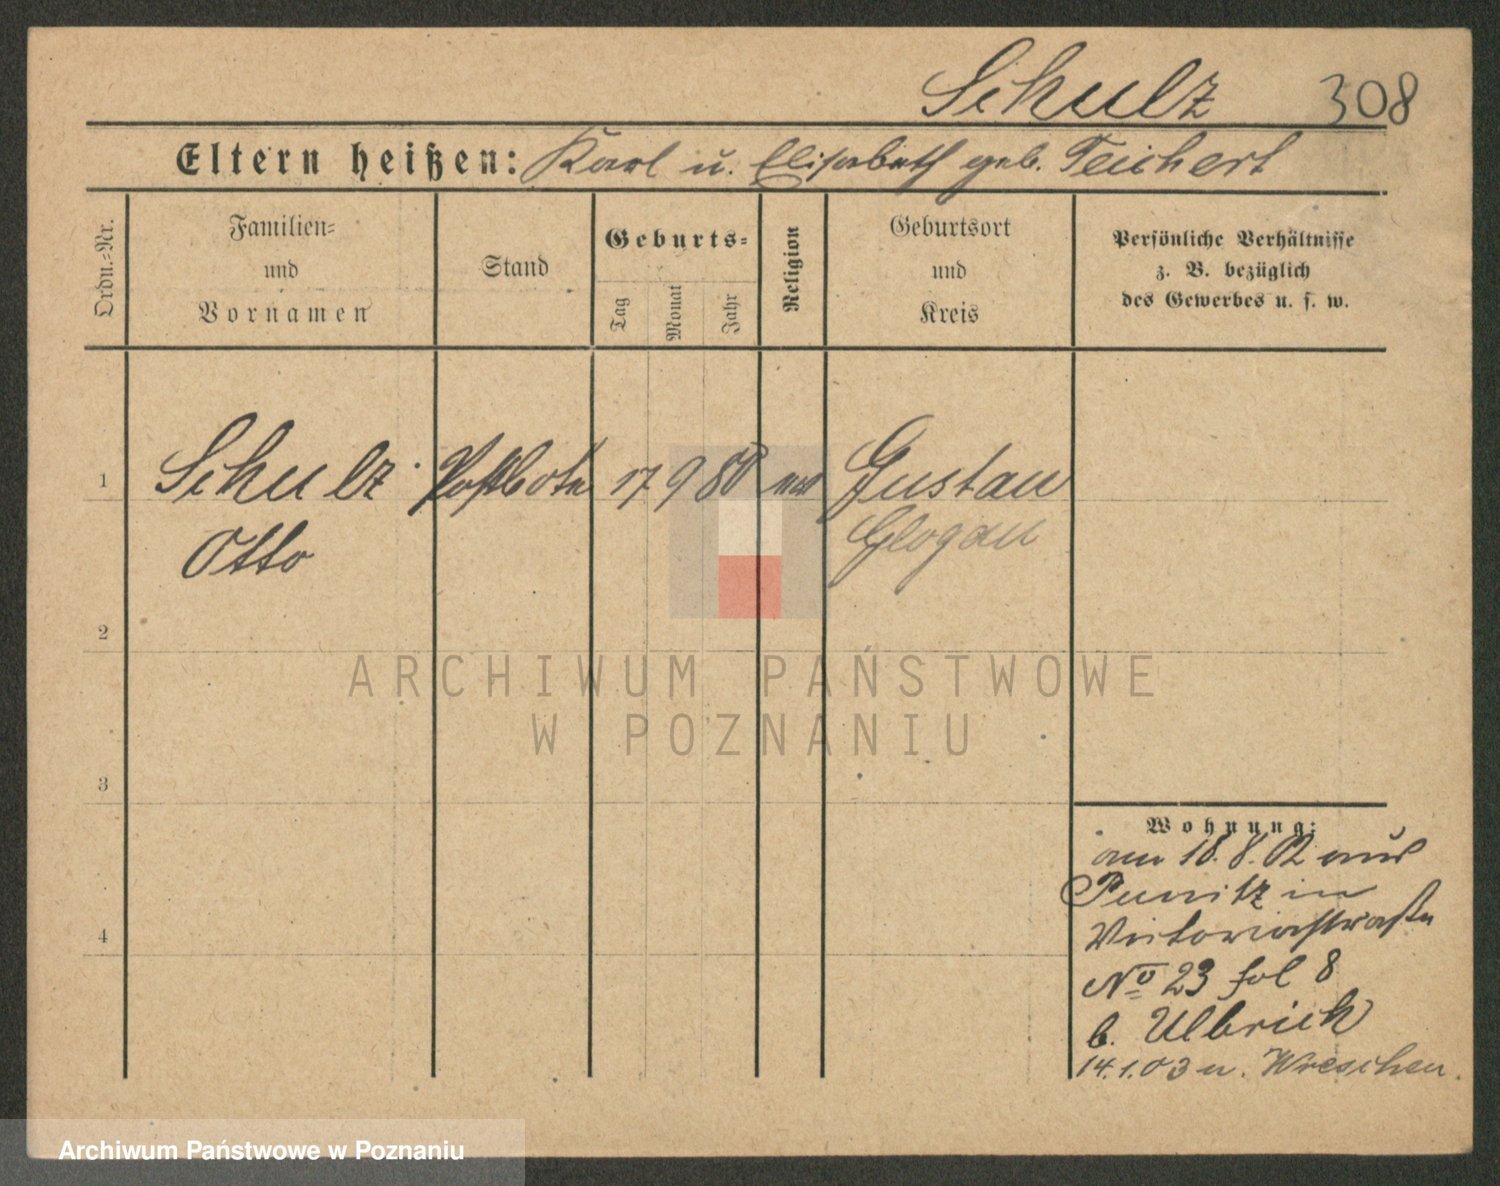 Schulz 308
Eltern heißen: Karl u. Elisabeth geb. Teichert
Ordn.-Nr.
Familien-
und
Vornamen
Stand
Geburts-
Tag
Monat
Jahr
Religion
Geburtsort
und
Kreis
Persönliche Verhältnisse
z. B. bezüglich
des Gewerbes u. s. w.
1 Schulz Postbote 17 9 80 Gustau
Otto Glogau
2
3
4
Wohnung:
am 18.8.02 aus
Punitz in
Victoriastraße
No 23 fol 8
b. Ulbrich
14.1.03 n. Wreschen.
ARCHIWUM PAŃSTWOWE
W POZNANIU
Archiwum Państwowe w Poznaniu